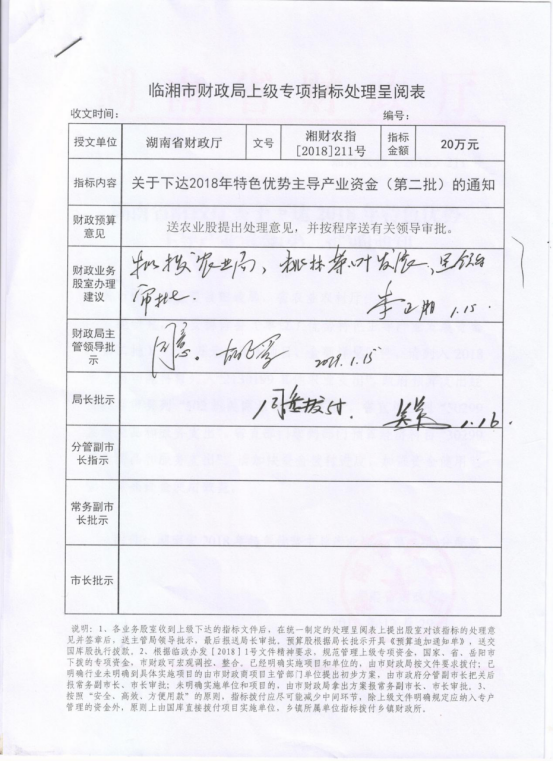 临湘市财政局上级专项指标处理呈阅表
收文时间： 编号：
授文单位 湖南省财政厅 文号 湘财农指[2018]211号 指标金额 20万元
指标内容 关于下达2018年特色优势主导产业资金（第二批）的通知
财政预算意见 送农业股提出处理意见，并按程序送有关领导审批。
财政业务股室办理建议
农业局，
审批. 1.15.
财政局主管领导批示
同意. 2019.1.15
局长批示 同意拨付. 1.16.
分管副市长指示
常务副市长批示
市长批示
说明：1、各业务股室收到上级下达的指标文件后，在统一制定的处理呈阅表上提出股室对该指标的处理意
见并签章后，送主管局领导批示，最后报送局长审批，预算股根据局长批示开具《预算追加通知单》，送交
国库股执行拨款。2、根据临政办发[2018]1号文件精神要求，规范管理上级专项资金，国家、省、岳阳市
下拨的专项资金，市财政可宏观调控、整合。已经明确实施项目和单位的，由市财政局按文件要求拨付；已
明确行业未明确到具体实施项目的由市财政商项目主管部门单位提出初步方案，由市政府分管副市长把关后
报常务副市长、市长审批；未明确实施单位和项目的，由市财政局拿出方案报常务副市长、市长审批。3、
按照“安全、高效、方便用款”的原则，指标拨付应尽可能减少中间环节，除上级文件明确规定应纳入专户
管理的资金外，原则上由国库直接拨付项目实施单位，乡镇所属单位指标拨付乡镇财政所。